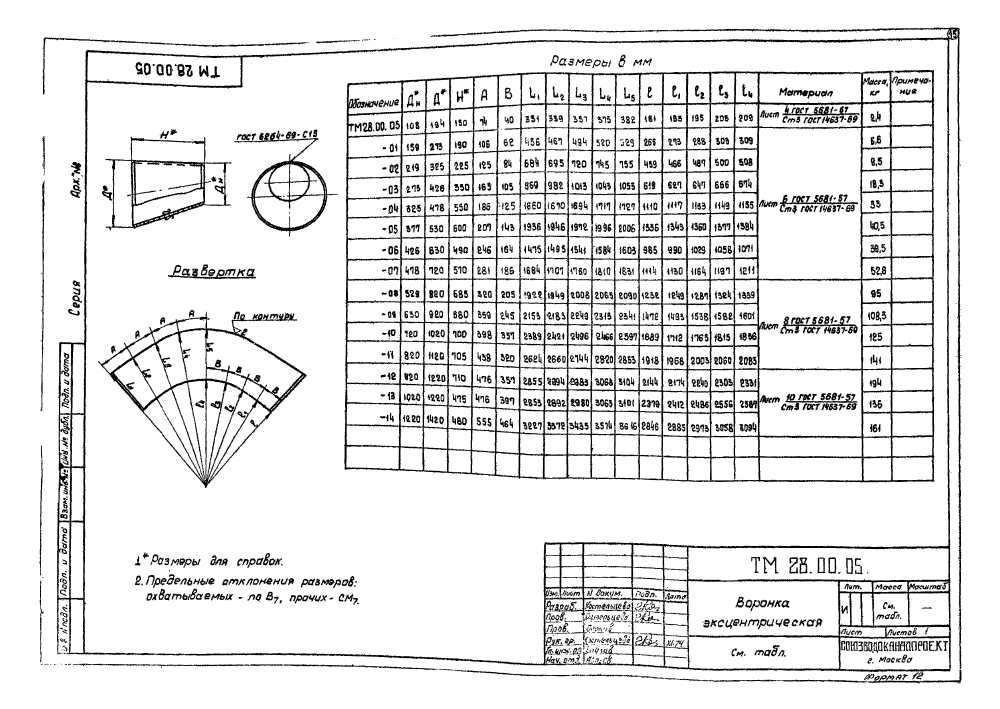 15
ТМ 28.00.05
Размеры в мм
Обозначение Дн* Д* Н* А В L1 L2 L3 L4 L5 ℓ ℓ1 ℓ2 ℓ3 ℓ4 Материал Масса, кг Примеча-ние
ТМ28.00.05 108 194 150 74 40 331 339 357 375 382 181 185 195 205 209 Лист 4 ГОСТ 5681-57 Ст3 ГОСТ 14637-69 2,4
-01 159 273 190 106 62 456 467 494 520 529 266 273 288 303 309 6,6
-02 219 325 225 125 84 684 695 720 745 755 459 466 487 500 508 9,5
-03 273 426 350 163 105 969 982 1013 1043 1055 619 627 647 666 674 18,3
-04 325 478 550 186 125 1660 1670 1694 1717 1727 1110 1117 1133 1149 1155 Лист 6 ГОСТ 5681-57 Ст3 ГОСТ 14637-69 33
-05 377 530 600 207 143 1936 1946 1972 1996 2006 1336 1343 1360 1377 1384 40,5
-06 426 630 490 246 164 1475 1495 1541 1584 1603 985 990 1029 1058 1071 38,5
-07 478 720 570 281 186 1684 1707 1760 1810 1831 1114 1130 1164 1197 1211 52,8
-08 529 820 685 320 205 1922 1949 2008 2065 2090 1232 1249 1287 1324 1339 95
-09 630 920 680 359 245 2153 2183 2249 2313 2341 1472 1493 1538 1582 1601 108,3
Лист 8 ГОСТ 5681-57 Ст3 ГОСТ 14637-69
-10 720 1020 700 398 337 2389 2421 2496 2466 2597 1689 1712 1763 1815 1836 125
-11 820 1120 705 438 320 2624 2660 2744 2820 2853 1918 1968 2003 2060 2085 141
-12 920 1220 710 476 357 2855 2894 2983 3068 3104 2144 2174 2240 2303 2331 194
-13 1020 1220 475 476 397 2853 2892 2980 3063 3101 2379 2412 2486 2556 2587 Лист 10 ГОСТ 5681-57 Ст3 ГОСТ 14637-69 136
-14 1220 1420 480 555 464 3227 3372 3435 3574 3616 2846 2885 2973 3058 3094 161
Н*
ГОСТ 5264-69-С15
Д*
Дн*
Арх. №
Серия
Развертка
По контуру
А
А
А
А
L1
L2
L3
L4
L5
В
В
В
В
ℓ4
ℓ3
ℓ2
ℓ1
ℓ
1* Размеры для справок.
2. Предельные отклонения размеров:
охватываемых - по В7, прочих - СМ7.
Подп. и дата
Инв. № дубл.
Взам. инв. №
Подп. и дата
Инв. № подл.
ТМ 28.00.05.
Изм. Лист N докум. Подп. Дата
Разраб.
Пров.
Пров.
Рук. гр. XI-74
Гл. инж.
Нач. отд.
Воронка
эксцентрическая
См. табл.
Лит. Масса Масштаб
И См. табл. —
Лист Листов 1
СОЮЗВОДОКАНАЛПРОЕКТ
г. Москва
Формат 12